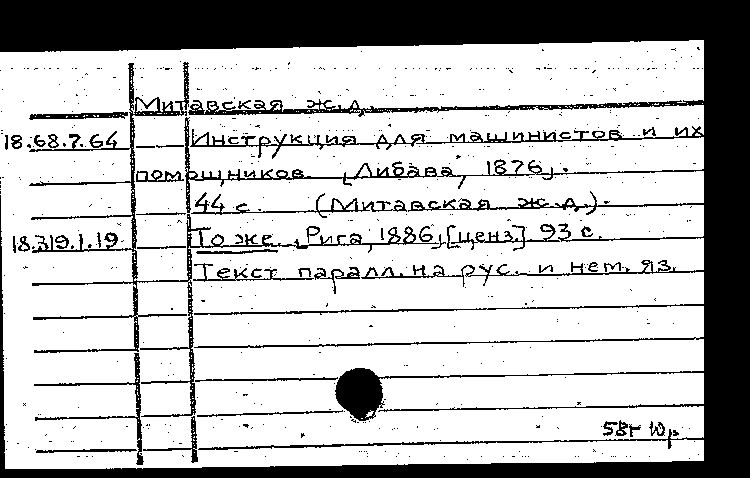 Митавская ж.д.
18.68.7.64 Инструкция для машинистов и их
помощников. [Либава, 1876].
44 с. (Митавская ж.д.).
18.319.1.19 То же. [Рига, 1886, [ценз.]. 93 с.
Текст паралл. на рус. и нем. яз.